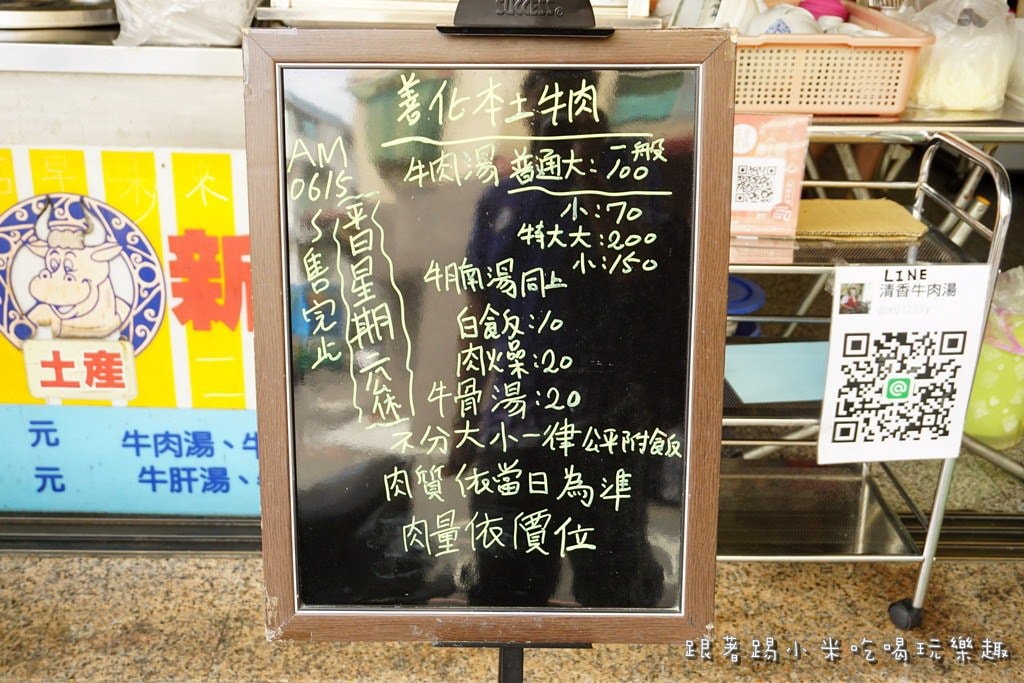 SUCCESS®
善化本土牛肉
牛肉湯 普通大：一般100
小：70
特大大：200
小：150
牛腩湯同上
白飯：10
肉燥：20
牛骨湯：20
不分大小一律公平附飯
肉質依當日為準
肉量依價位
AM
0615
售完止
平日星期一公休
新
土產
元 牛肉湯、牛
元 牛肝湯、
LINE
清香牛肉湯
跟著踢小米吃喝玩樂趣